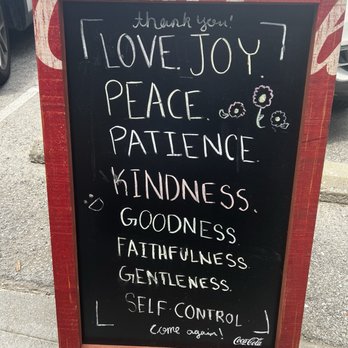 thank you!
LOVE. JOY.
PEACE.
PATIENCE.
KINDNESS.
GOODNESS.
FAITHFULNESS.
GENTLENESS.
SELF-CONTROL
come again!
Coca-Cola